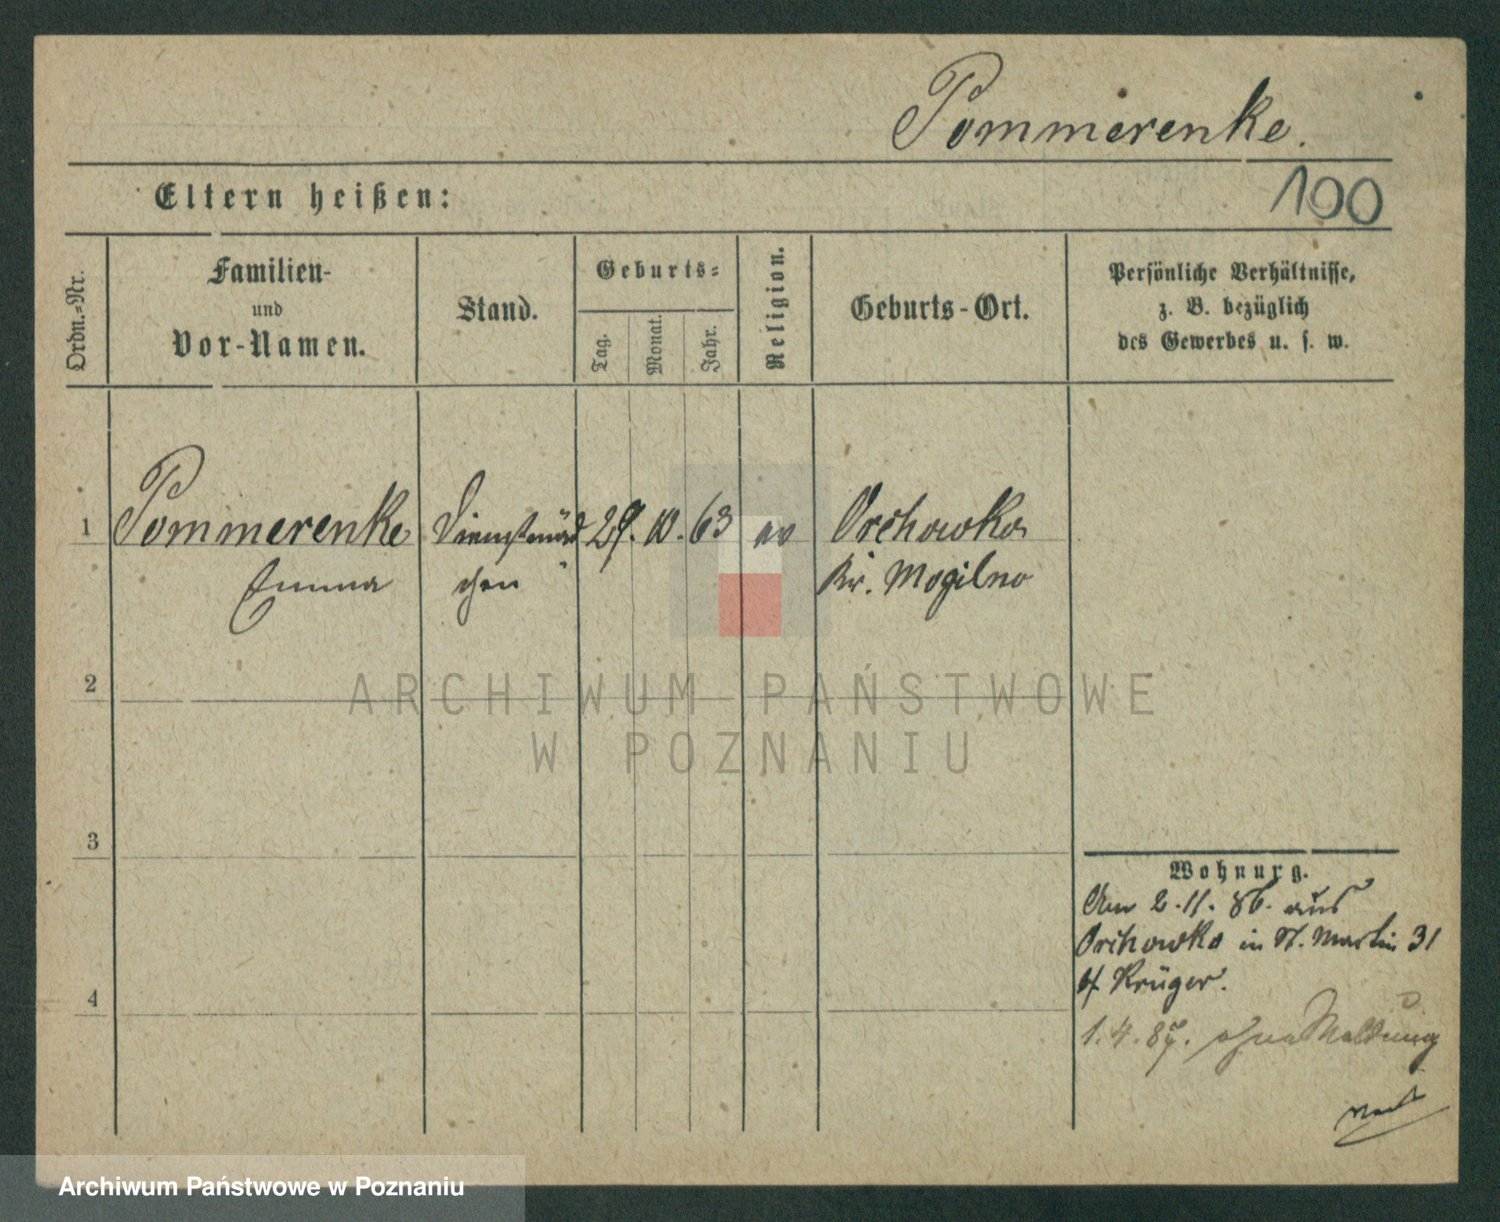 Pommerenke.
Eltern heißen:
100
Ordn.=Nr.
Familien-
und
Vor-Namen.
Stand.
Geburts=
Tag.
Monat.
Jahr.
Religion.
Geburts-Ort.
Persönliche Verhältnisse,
z. B. bezüglich
des Gewerbes u. s. w.
1
Pommerenke
Emma
Dienstmäd
chen
29. 10. 63
ev
Orchowko
Kr. Mogilno
2
ARCHIWUM PAŃSTWOWE
W POZNANIU
3
Wohnung.
Am 2.11.86. aus
Orchowko in St. Martin 31
Krüger.
4
1.4.87. ohne Meldung
Archiwum Państwowe w Poznaniu